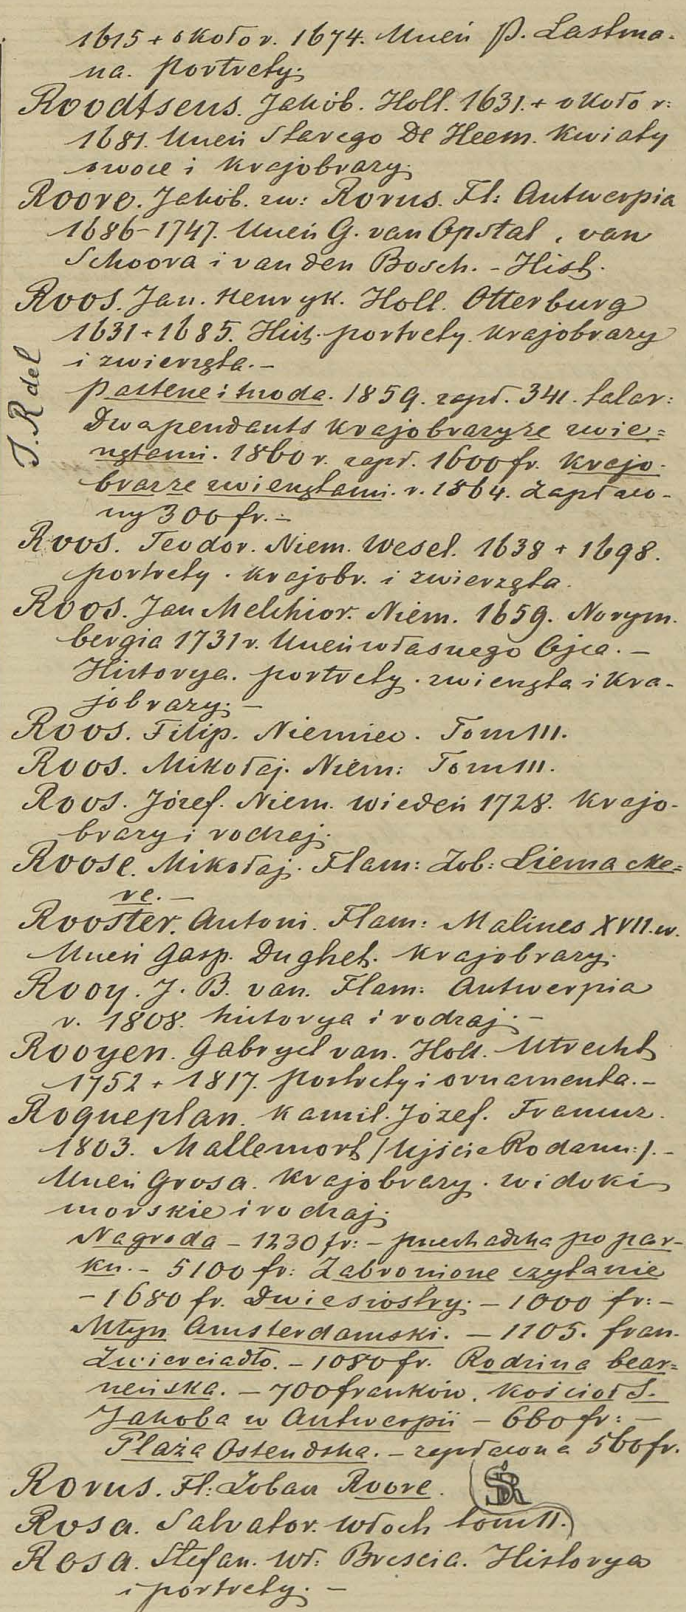 1615 + około r. 1674. Uczeń P. Lastma-
na. portrety.
Roodtseus. Jakób. Holl. 1631. + około r:
1681. Uczeń Starego De Heem. Kwiaty
owoce i krajobrazy.
Roore. Jakób. zw: Rorus. Fl: Antwerpia
1686-1747. Uczeń G. van Opstal, van
Schoora i van den Bosch. - Hist.
Roos. Jan. Henryk. Holl. Otterburg
1631 + 1685. Hist. portrety. krajobrazy
i zwierzęta. -
J. R del
Pasterze i trzoda. 1859. zapł. 341. talar:
Dwa pendants krajobrazy ze zwie=
rzętami. 1860 r. zapł. 1600 fr. Krajo-
braz ze zwierzętami. r. 1864. Zapłaco-
ny 300 fr. -
Roos. Teodor. Niem. Wesel. 1638 + 1698.
portrety. krajobr. i zwierzęta.
Roos. Jan Melchior. Niem. 1659. Norym.
bergia 1731 r. Uczeń własnego Ojca. -
Historya. portrety. zwierzęta i kra-
jobrazy. -
Roos. Filip. Niemiec. Tom III.
Roos. Mikołaj. Niem: Tom III.
Roos. Józef. Niem. Wiedeń 1728. Krajo-
brazy i rodzaj.
Roose. Mikołaj. Flam: Zob: Liemacke=
re. -
Rooster. Antoni. Flam: Malines XVII. w.
Uczeń Gasp. Dughet. Krajobrazy.
Rooy. J. B. van. Flam: Antwerpia
r. 1808. historya i rodzaj. -
Rooyen. Gabryel van. Holl. Utrecht
1752 + 1817. portrety i ornamenta. -
Roqueplan. Kamil. Józef. Francuz.
1803. Mallemort / Ujście Rodanu: /. -
Uczeń Grosa. Krajobrazy. widoki
morskie i rodzaj.
Nagroda - 1230 fr: - przechadzka po par-
ku. - 5100 fr: Zabronione czytanie
- 1680 fr. Dwie siostry. - 1000 fr: -
Młyn Amsterdamski. - 1105. fran.
Zwierciadło. - 1080 fr. Rodzina bear=
neńska. - 700 franków. Kościół S.
Jakóba w Antwerpii - 660 fr: -
Plaża Ostendska. - zapłacona 560 fr.
Rorus. Fl: Zobacz Roore. SR
Rosa. Salvator. Włoch tom II.
Rosa. Stefan. Wł: Brescia. Historya
i portrety. -